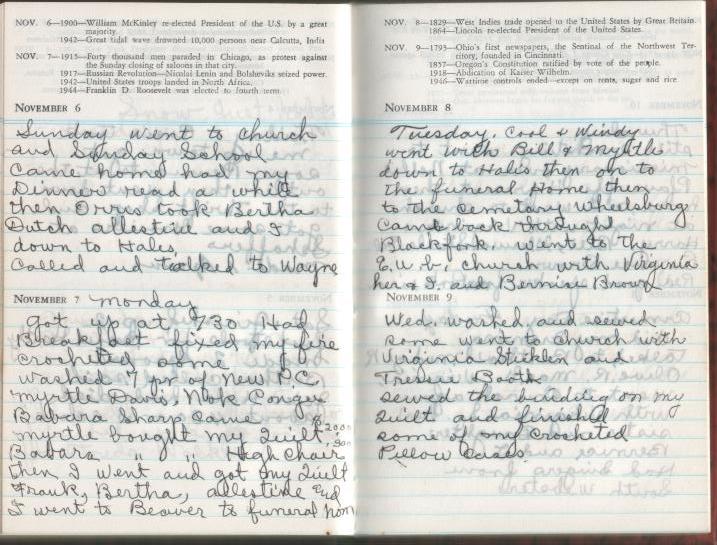 NOV. 6—1900—William McKinley re-elected President of the U.S. by a great
majority.
1942—Great tidal wave drowned 10,000 persons near Calcutta, India
NOV. 7—1915—Forty thousand men paraded in Chicago, as protest against
the Sunday closing of saloons in that city.
1917—Russian Revolution—Nicolai Lenin and Bolsheviks seized power.
1942—United States troops landed in North Africa.
1944—Franklin D. Roosevelt was elected to fourth term.
NOVEMBER 6
Sunday went to church
and Sunday School
Came home had my
Dinner read a while
then Orris took Bertha
Dutch allestine and I
down to Hales,
Called and talked to Wayne
NOVEMBER 7 Monday
Got up at 730 Had
Breakfast fixed my fire
crocheted some
washed 7 pr of new P.C.
myrtle Davis, Nok Conger
Babara Sharp came
myrtle bought my Quilt,
Babara " High Chair
then I went and got my Quilt
Frank, Bertha, allestine and
I went to Beaver to funeral hom
NOV. 8—1829—West Indies trade opened to the United States by Great Britain.
1864—Lincoln re-elected President of the United States.
NOV. 9—1793—Ohio's first newspapers, the Sentinal of the Northwest Ter-
ritory, founded in Cincinnati.
1857—Oregon's Constitution ratified by vote of the people.
1918—Abdication of Kaiser Wilhelm.
1946—Wartime controls ended—except on rents, sugar and rice
NOVEMBER 8
Tuesday. Cool & Windy
went with Bill & Myrtle
down to Hales then on to
the funeral Home then
to the Cemetary Wheelsburg
Came back throught
Blackfork. went to the
E.U.B. church with Virginia
her & I, and Bernise Brown
NOVEMBER 9
Wed. washed, and sewed
some went to church with
Virginia Sticklen and
Tressie Booth
sewed the binding on my
Quilt and finished
some of my crocheted
Pillow Cases.